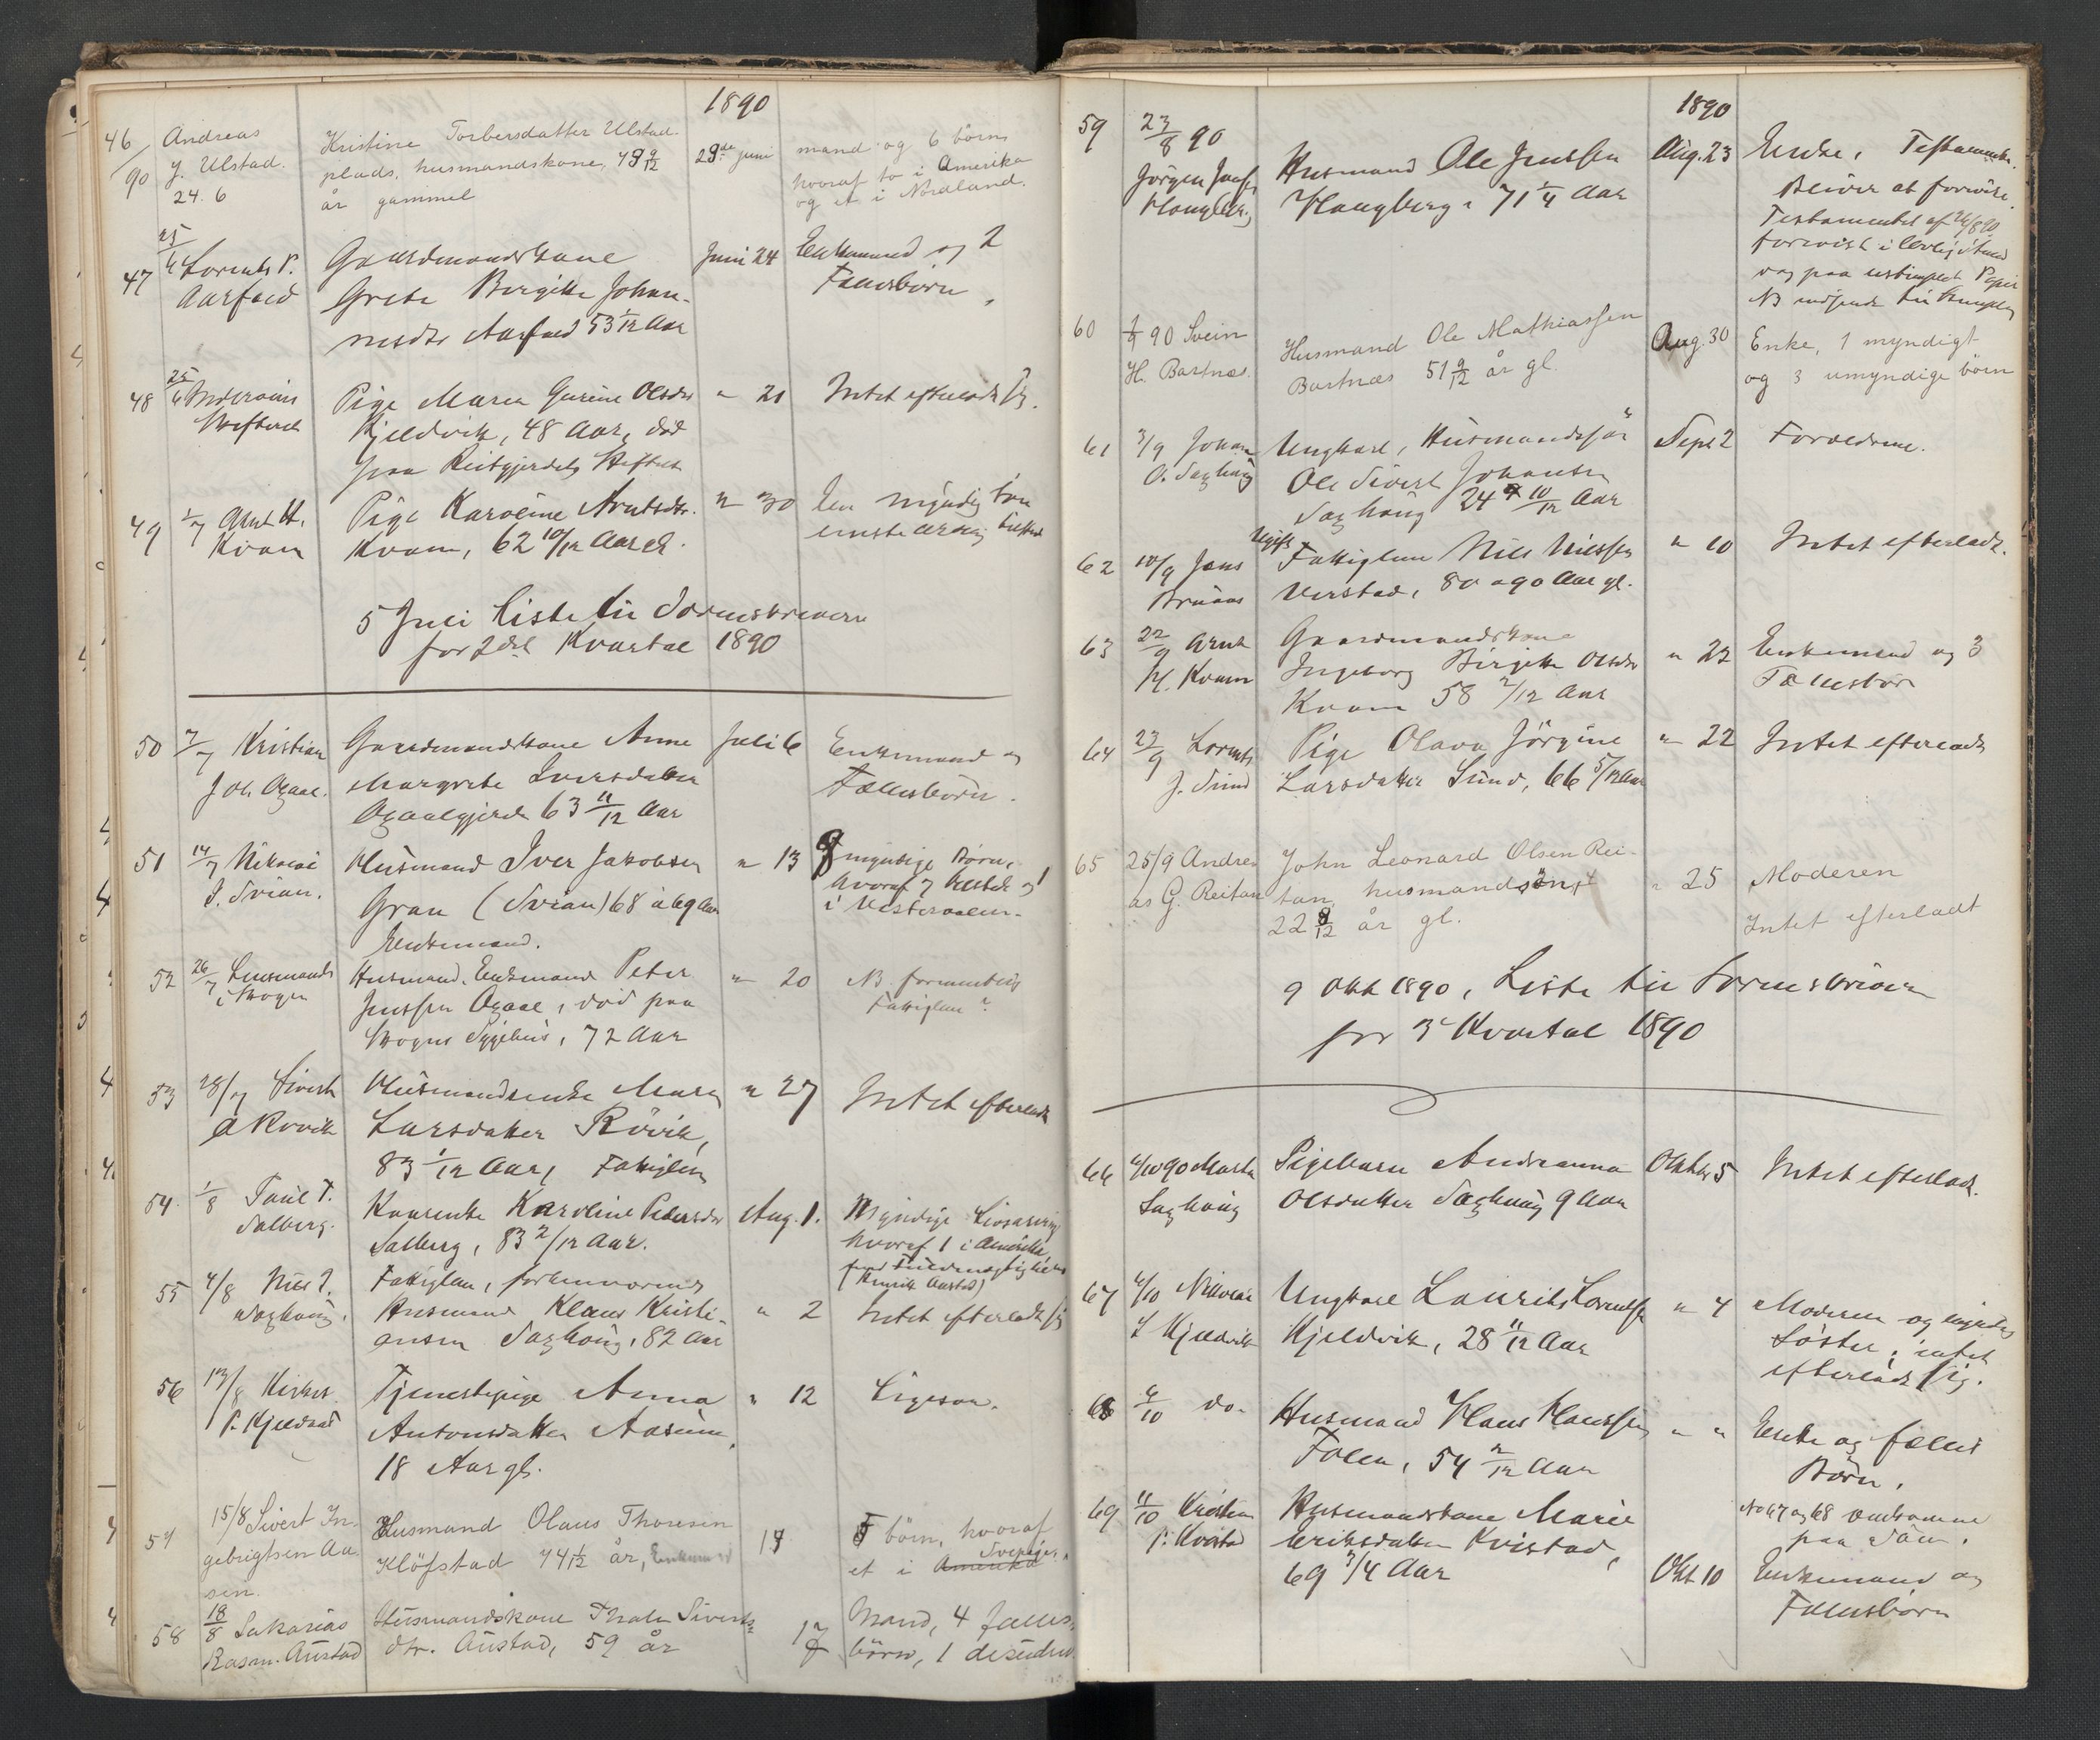 1890
46/90 Andreas J. Ulstad. 24. 6
Kristine Torbersdatter Ulstad-
plads, husmandskone, 49 9/12
år gammel
23de juni
mand og 6 börn
hvoraf to i Amerika
og et i Nordland.
47 25/6 Lorents P. Aarfald
Gaardmandskone
Grete Birgitte Johan-
nesdtr Aarfald 53 1/12 Aar
Juni 24
Enkemand og 2
Fællesbörn
48 25/6
Pige Maren Gurine Olsdtr
Kjeldvik, 48 Aar, död
paa Reitgjerdets Stiftelse
" 21
Intet efterladt sig.
49 1/7 Arnt H. Kvam
Pige Karoline Arntsdtr.
Kvam, 62 10/12 Aar gl.
" 30
En myndig
5 Juli Liste til Sorenskriveren
for 2det Kvartal 1890
50 7/7 Kristian Joh. Agaal.
Gaardmandskone Anne
Margrete Iversdatter
Agaalgjerde 63 11/12 Aar
Juli 6
Enkemand og
Fællesbörn.
51 14/7 Nikolai J. Svian.
Husmand Iver Jakobsen
Gran (Svian) 68 à 69 Aar
Enkemand.
" 13
myndige Börn,
hvoraf 7 tilstede og 1
i Vesteraalen.
52 26/7 Lensmand i Skogn
Husmand, Enkemand Peter
Jenssen Agaal, död paa
Skogns Sygehus, 72 Aar
" 20
NB formentlig
Fattiglem?
53 28/7 Sivert A Rövik
Husmandsenke Maren
Larsdatter Rövik,
83 1/12 Aar, Fattiglem
" 27
Intet efterladt
54 1/8 Paul T. Salberg.
Kaarenke Karoline Pedersdtr
Salberg, 83 2/12 Aar.
Aug. 1.
Myndige Livsarving
hvoraf 1 i Amerika,
55 4/8 Nils J. Saghaug.
Fattiglem, forhenværende
Husmand Klaus Kristi-
ansen Saghaug, 82 Aar
" 2
Intet efterladt sig
56 13/8 P. Kjeldsad
Tjenestepige Anna
Antonsdatter Aasum,
18 Aar gl.
" 12
Ligesaa.
57 15/8 Sivert In-
gebrigtsen Aa-
sen.
Husmand Olaus Thoresen
Klöfstad 74 1/12 år, Enkemand
14
5 börn, hvoraf
et i Amerika Sverige.
58 18/8 Sakarias Rasm. Austad
Husmandskone Thale Siverts-
dtr. Austad, 59 år
17
Mand, 4 fælles-
börn, 1 desuden
1890
59 23/8 90 Jörgen Haugberg
Husmand Ole Jenssen
Haugberg, 71 1/4 Aar
Aug. 23
Enke, Testamente
bliver at forevise.
Testamentet af
forevist i
og paa ustemplet Papir
60 1/9 90 Svein H. Bartnæs.
Husmand Ole Mathiassen
Bartnæs 51 9/12 år gl.
Aug. 30
Enke, 1 myndigt
og 3 umyndige börn
61 3/9 Johan O. Saghaug
Ungkarl, Husmandssön
Ole Sivert Johansen
Saghaug 24 10/12 Aar
Sept 2
Forældrene.
62 10/9 Jens Braaas
Ugift Fattiglem Nils Nilssen
Verstad, 80 a 90 Aar gl.
" 10
Intet efterladt.
63 22/9 Arnt H. Kvam
Gaardmandskone
Ingeborg Birgitte Olsdtr
Kvam 58 2/12 Aar
" 22
Enkemand og 3
Fællesbör
64 23/9 Lorents J. Sund
Pige Olava Jörgine
Larsdatter Sund, 66 5/12 Aar
" 22
Intet efterladt
65 25/9 Andre-
as G. Reitan
John Leonard Olsen Rei-
tan, husmandsön,
22 8/12 år gl.
" 25
Moderen
Intet efterladt
9 Okt 1890, Liste til Sorenskriveren
for 3' Kvartal 1890
66 6/10 90 Martin Saghaug
Pigebarn Andreanna
Olsdatter Saghaug 9 Aar
Oktbr 5
Intet efterladt.
67 6/10 Nikolai L Kjeldvik
Ungkarl Laurits Lorentsen
Kjeldvik, 28 11/12 Aar
" 4
Moderen og myndig
Söster, intet
efterladt sig.
68 6/10 do.
Husmand Hans Hanssen
Folla, 54 2/12 Aar
" "
Enke og fælles
Börn.
No 67 og 68 omkomne
paa Söen.
69 11/10 Kristian P. Kvistad
Husmandskone Marie
Eriksdatter Kvistad,
69 3/4 Aar
Okt 10
Enkemand og
Fællesbörn